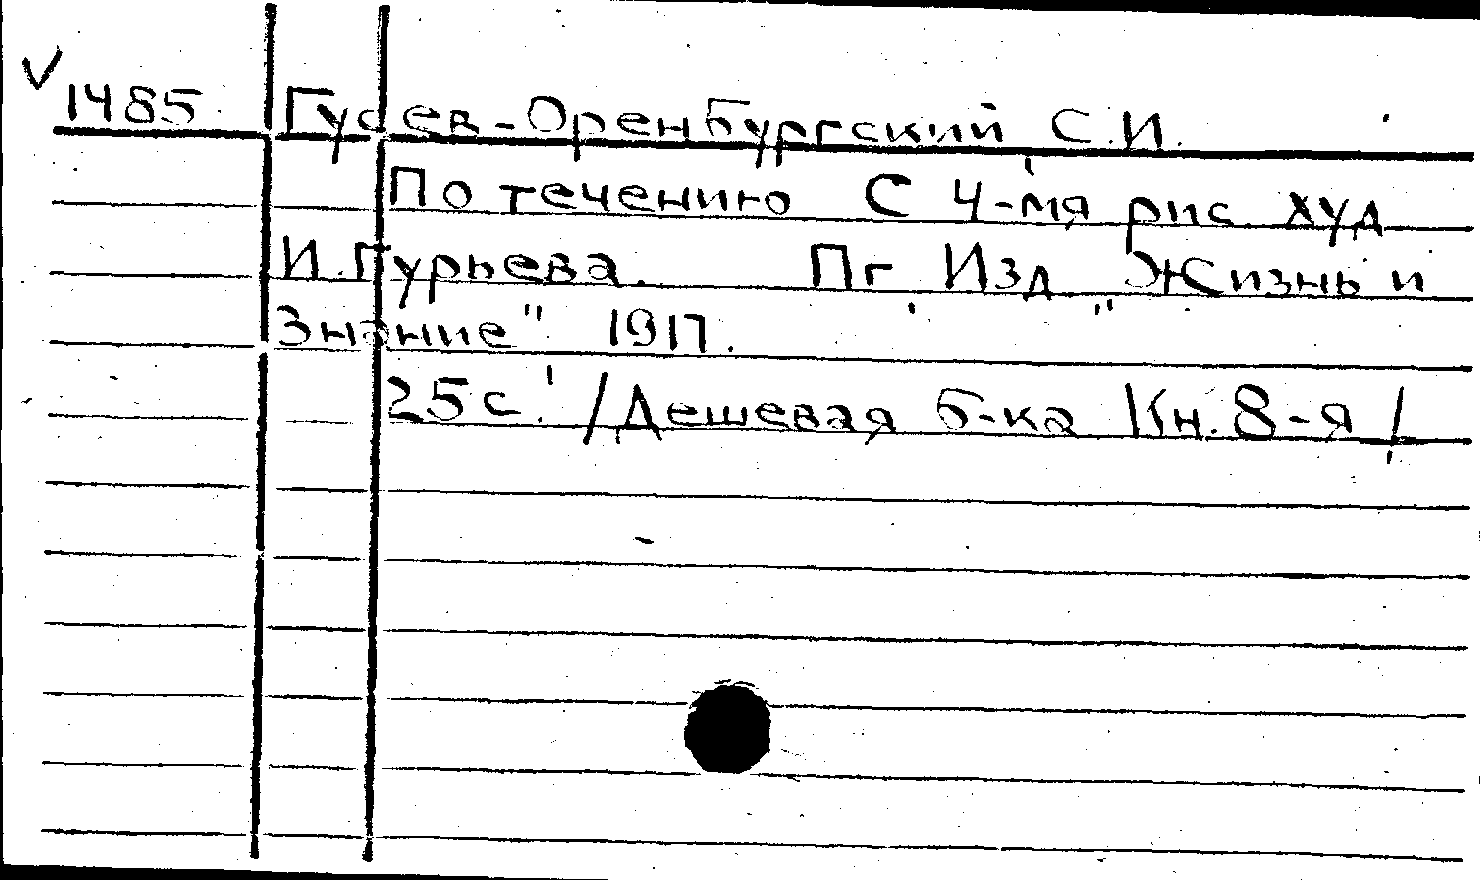 √ 1485 Гусев-Оренбургский С.И.
По течению С 4-мя рис. худ
И.Гурьева. Пг Изд "Жизнь и
Знание" 1917.
25 с. /Дешевая б-ка Кн. 8-я/